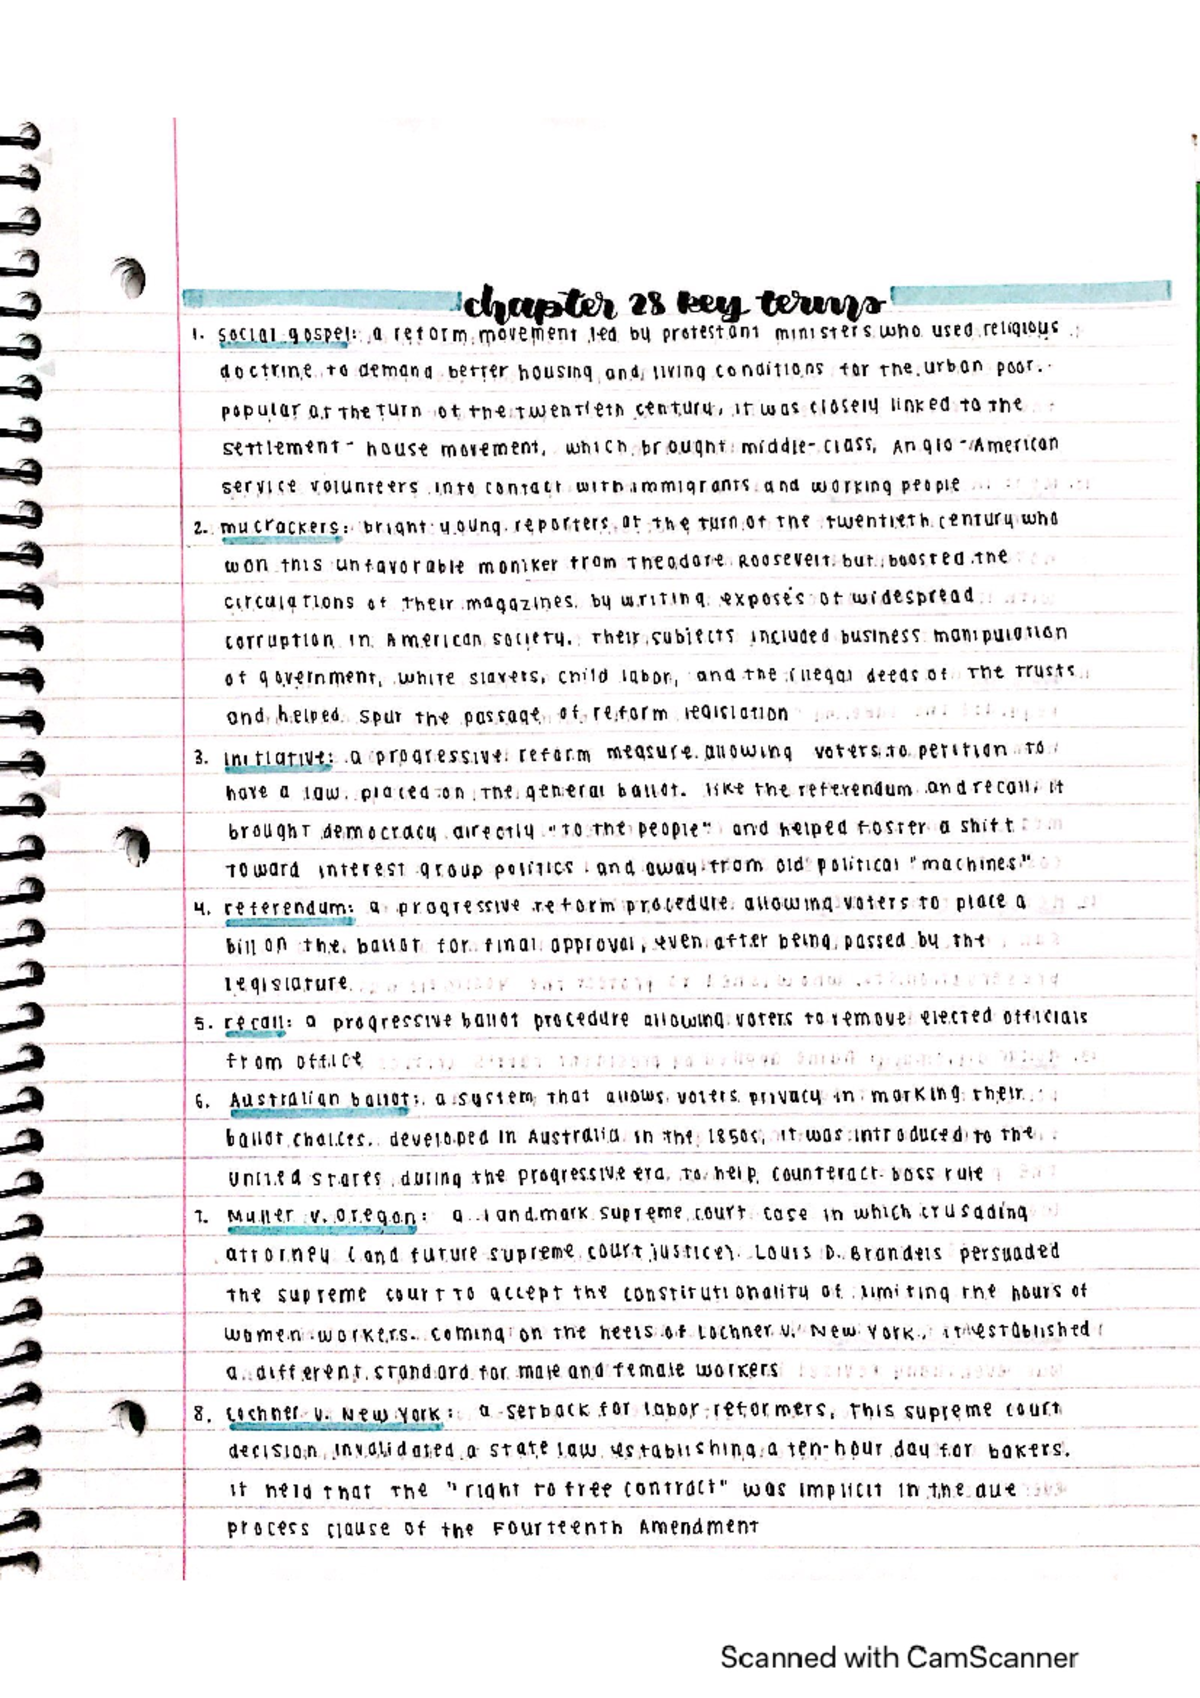 chapter 28 key terms
1. social gospel: a reform movement led by protestant ministers who used religious
doctrine to demand better housing and living conditions for the urban poor.
popular at the turn of the twentieth century, it was closely linked to the
settlement-house movement, which brought middle-class, Anglo-American
service volunteers into contact with immigrants and working people
2. mucrackers: bright young reporters at the turn of the twentieth century who
won this unfavorable moniker from Theodore Roosevelt but boosted the
circulations of their magazines by writing exposés of widespread
corruption in American society. Their subjects included business manipulation
of government, white slavers, child labor, and the illegal deeds of the trusts
and helped spur the passage of reform legislation
3. initiative: a progressive reform measure allowing voters to petition to
have a law placed on the general ballot. like the referendum and recall, it
brought democracy directly "to the people" and helped foster a shift
toward interest group politics and away from old political "machines"
4. referendum: a progressive reform procedure allowing voters to place a
bill on the ballot for final approval, even after being passed by the
legislature
5. recall: a progressive ballot procedure allowing voters to remove elected officials
from office
6. Australian ballot: a system that allows voters privacy in marking their
ballot choices. developed in Australia in the 1850s, it was introduced to the
United States during the progressive era to help counteract boss rule
7. Muller v. Oregon: a landmark supreme court case in which crusading
attorney (and future supreme court justice) Louis D. Brandeis persuaded
the supreme court to accept the constitutionality of limiting the hours of
women workers. coming on the heels of Lochner v. New York, it established
a different standard for male and female workers
8. Lochner v. New York: a setback for labor reformers, this supreme court
decision invalidated a state law establishing a ten-hour day for bakers.
it held that the "right to free contract" was implicit in the due
process clause of the Fourteenth Amendment
Scanned with CamScanner